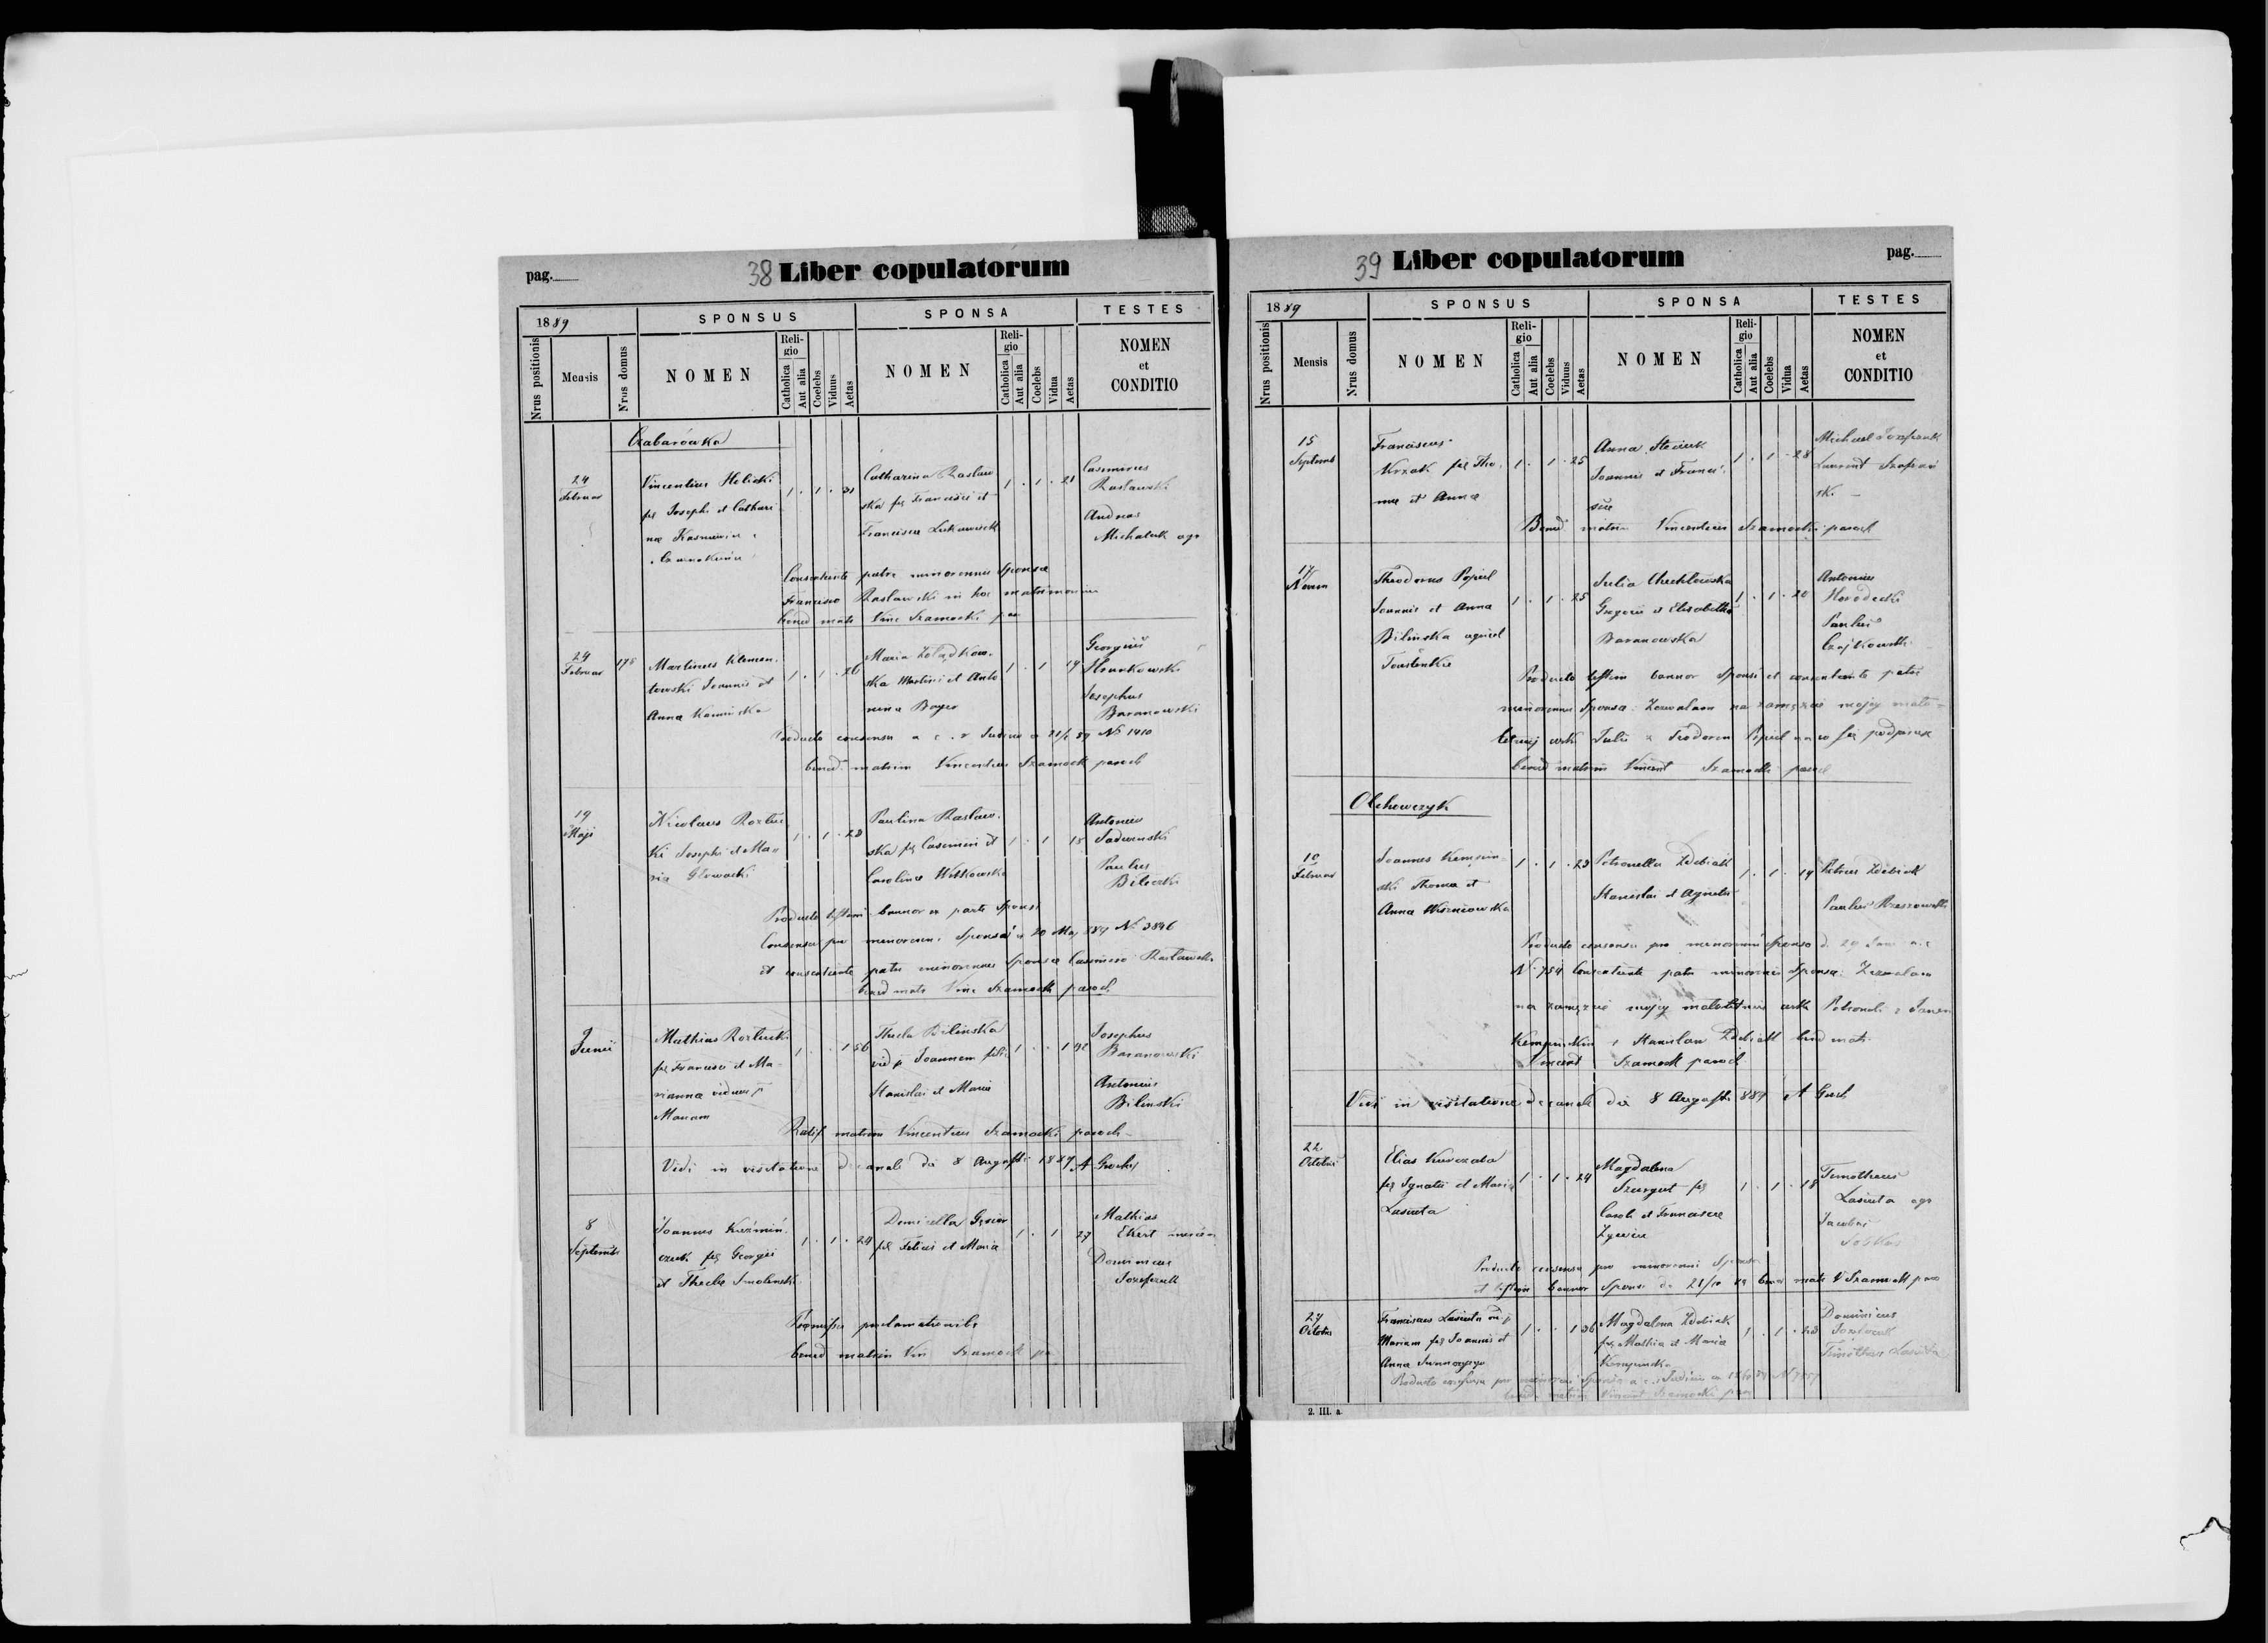 pag.
38 Liber copulatorum
1889
SPONSUS
SPONSA
TESTES
Nrus positionis
Mensis
Nrus domus
NOMEN
Religio
Catholica
Aut alia
Coelebs
Viduus
Aetas
NOMEN
Religio
Catholica
Aut alia
Coelebs
Vidua
Aetas
NOMEN
et
CONDITIO
Czabarówka
24
Februar
Vincentius Helicki
fil Josephi et Cathari
nae
1 . 1 . 31
Catharina Raslaw
ska fil Francisci et
Francisca
1 . 1 . 21
Casimirus
Raslawski
Andreas
Michaluk agr
Consentiente patre minorennis Sponsae
Francisco Raslawski in hoc matrimonium
bened matr Vinc Szamocki par
24
Februar
178
Martinus Klemen
towski Joannis et
Anna Kaminska
1 . 1 . 26
Maria Żołądkow
ska Martini et Anto
nina Bayer
1 . 1 19
Georgius
Josephus
Baranowski
Producto consensu a c . r Judicio 89 No 1410
bened matrim Vincentius Szamocki paroch
19
Maji
Nicolaus Rozłuc
ki Josephi et Ma
ria Głowacki
1 . 1 . 28
Paulina Raslaw
ska fil Casimiri et
Carolina Witkowska
1 . 1 18
Antonius
Sadowski
Paulus
Bilecki
Producto testimo bannor ex parte Sponsi
Consensu pro minorenni Sponsa 20 Maj 889 No 3896
et consentiente patre minorennis Sponsae Casimiro Raslawski
bened matr Vinc Szamocki paroch
Junii
Mathias Rozłucki
fil Francisci et Ma
rianna viduus p
Mariam
1 . . 1 56
Thecla Bilinska
vid p Joannem filia
Stanislai et Maria
1 . . 1 42
Josephus
Baranowski
Antonius
Bilinski
Ratif matrim Vincentius Szamocki paroch
Vidi in visitatione decanali die 8 Augusti 1889 A
8
Septembr
Joannes Kuźmiń
czuk fil Georgii
et Thecla Smolenski
1 . 1 . 24
fil Felicis et Maria
1 . 1 27
Mathias
Ekert
Dominicus
Jozefczuk
Praemissis proclamationib
bened matrim Vin Szamocki pa
39 Liber copulatorum
pag.
1889
SPONSUS
SPONSA
TESTES
Nrus positionis
Mensis
Nrus domus
NOMEN
Religio
Catholica
Aut alia
Coelebs
Viduus
Aetas
NOMEN
Religio
Catholica
Aut alia
Coelebs
Vidua
Aetas
NOMEN
et
CONDITIO
15
Septemb
Franciscus
Krzak fil Tho
mae et Annae
1 . 1 . 25
Anna Steciuk
Joannis et Franci
scae
1 . 1 . 28
Michael Jozefczuk
Laurent Szafrań
ski
Bened matrim Vincentius Szamocki paroch
17
Novem
Theodorus Popiel
Joannis et Anna
Bilinska agricol
1 . 1 . 25
Julia Chechłowska
Gregorii et Elisabetha
Baranowska
1 . 1 . 20
Antonius
Horodecki
Paulus
Czajkowski
Producto testim bannor Sponsi et consentiente patre
minorennis Sponsae: Zezwalam na zamęzcie mojej mało
letniej córki Julii z Teodorem Popiel na co się podpisuje
bened matrim Vincent Szamocki paroch
Olchowczyk
10
Februar
Joannes Kempin
ski Thoma et
Anna Wiszniowska
1 . 1 . 23
Petronella Zdebiak
Stanislai et Agneta
1 . 1 . 19
Petrus Zdebiak
Paulus Rzeszowski
Producto consensu pro minorenni sponso d. 29 Jan a. c
N. 754 Consentiente patre minorennis Sponsae: Zezwalam
na zamęzcie mojej małoletniej córki Petroneli z Janem
Kempinskim Stanislaw Zdebiak bened matr
Vincent Szamocki paroch
Vidi in visitatione decanali die 8 Augusti 889 A
22
Octobris
Elias Kurczaba
fil Ignatii et Maria
Lasiuta
1 . 1 . 24
Magdalena
Szurgut fil
Caroli et Franciscae
1 . 1 . 18
Timotheus
Lasiuta agr
Jacobus
Producto consensu pro minorenni Sponsa
et testim bannor Sponsi de 21/10 89 bened matr V Szamocki paro
27
Octobr
Franciscus Lasiuta vid p
Mariam fil Joannis et
Anna
1 . . 1 36
Magdalena Zdebiak
fil Mathia et Maria
Kempinska
1 . 1 . 23
Dominicus
Jozefczuk
Timotheus Lasiuta
bened matrim Vincent Szamocki paro
2. III. a.